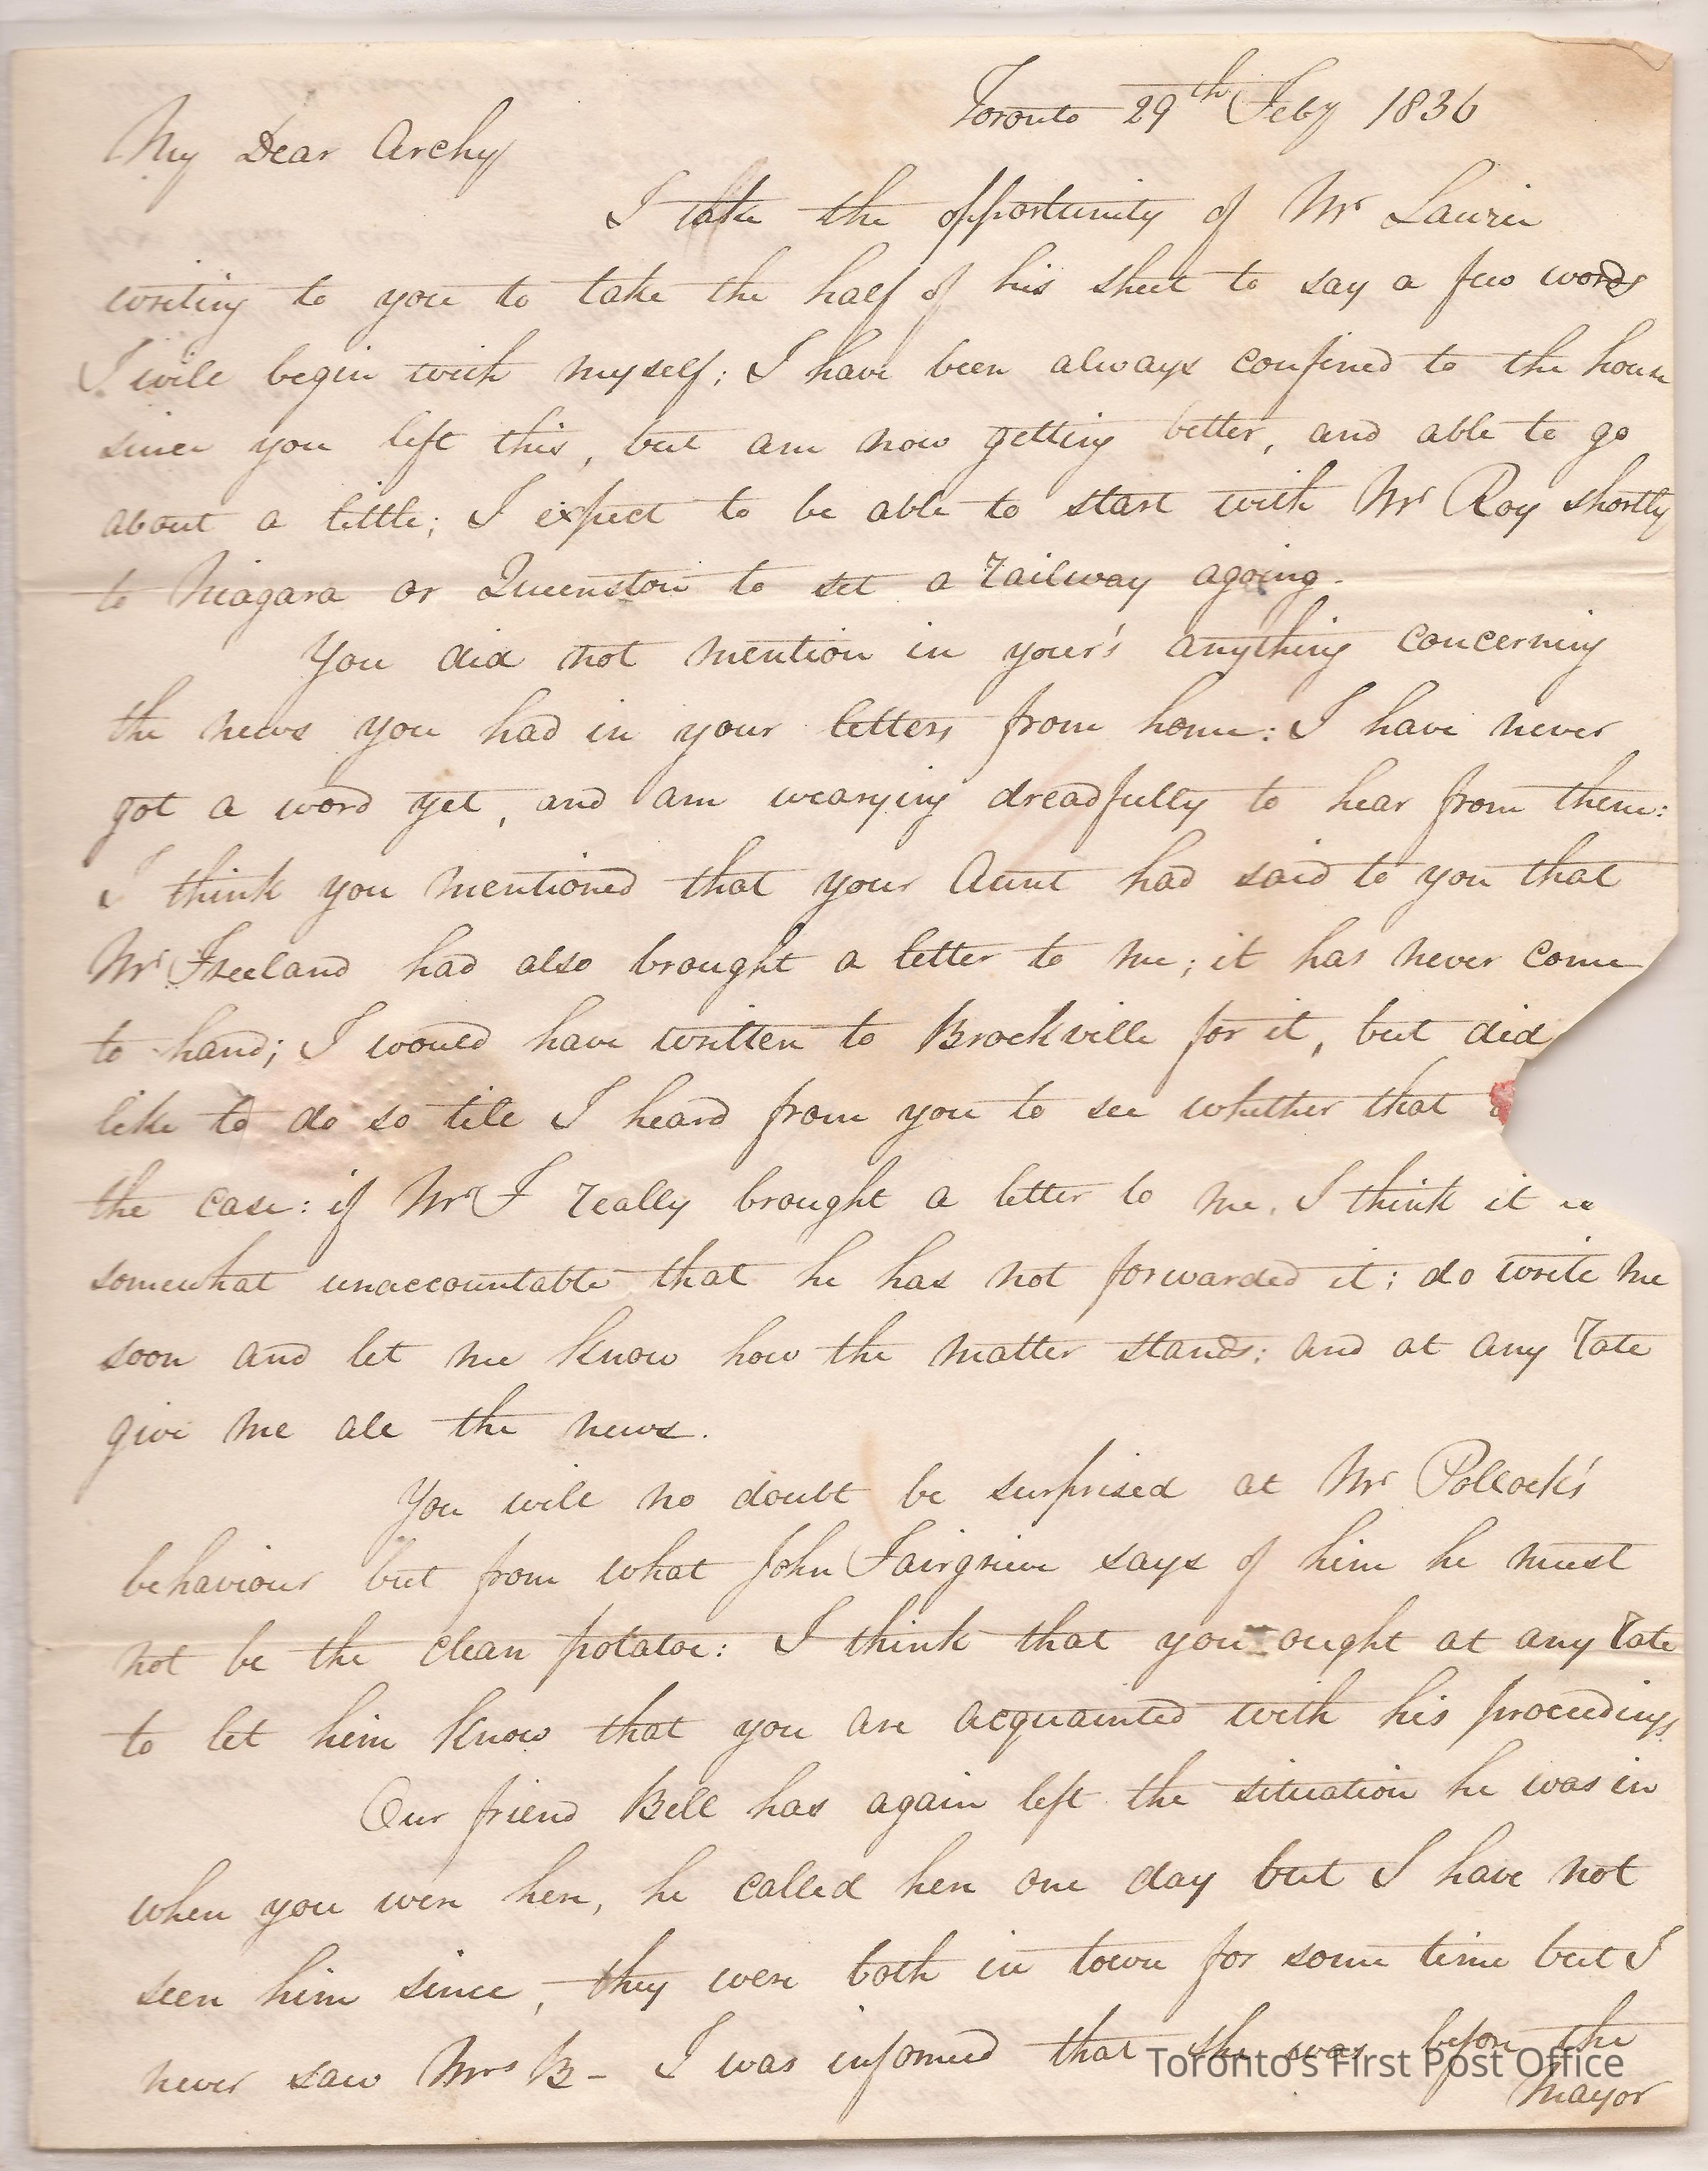 Toronto 29th Feby 1836
My Dear Archy
I take the opportunity of Mr Laurie
writing to you to take the half of his sheet to say a few words
I will begin with myself; I have been always confined to the house
since you left this, but am now getting better, and able to go
about a little; I expect to be able to start with Mr Roy shortly
to Niagara or Queenston to set a railway agoing.
You did not mention in your's anything concerning
the news you had in your letters from home: I have never
got a word yet, and am wearying dreadfully to hear from them:
I think you mentioned that your Aunt had said to you that
Mr Freeland had also brought a letter to me; it has never come
to hand; I would have written to Brockville for it, but did
like to do so till I heard from you to see whether that
the case: if Mr F really brought a letter to me, I think it is
somewhat unaccountable that he has not forwarded it; do write me
soon and let me know how the matter stands: and at any rate
give me all the news.
You will no doubt be surprised at Mr Pollock's
behaviour but from what John Fairgrieve says of him he must
not be the clean potatoe: I think that you ought at any rate
to let him know that you are acquainted with his proceedings
Our friend Bell has again left the situation he was in
when you were here, he called here one day but I have not
seen him since, they were both in town for some time but I
never saw Mrs B - I was informed that she was before the
Mayor
Toronto's First Post Office